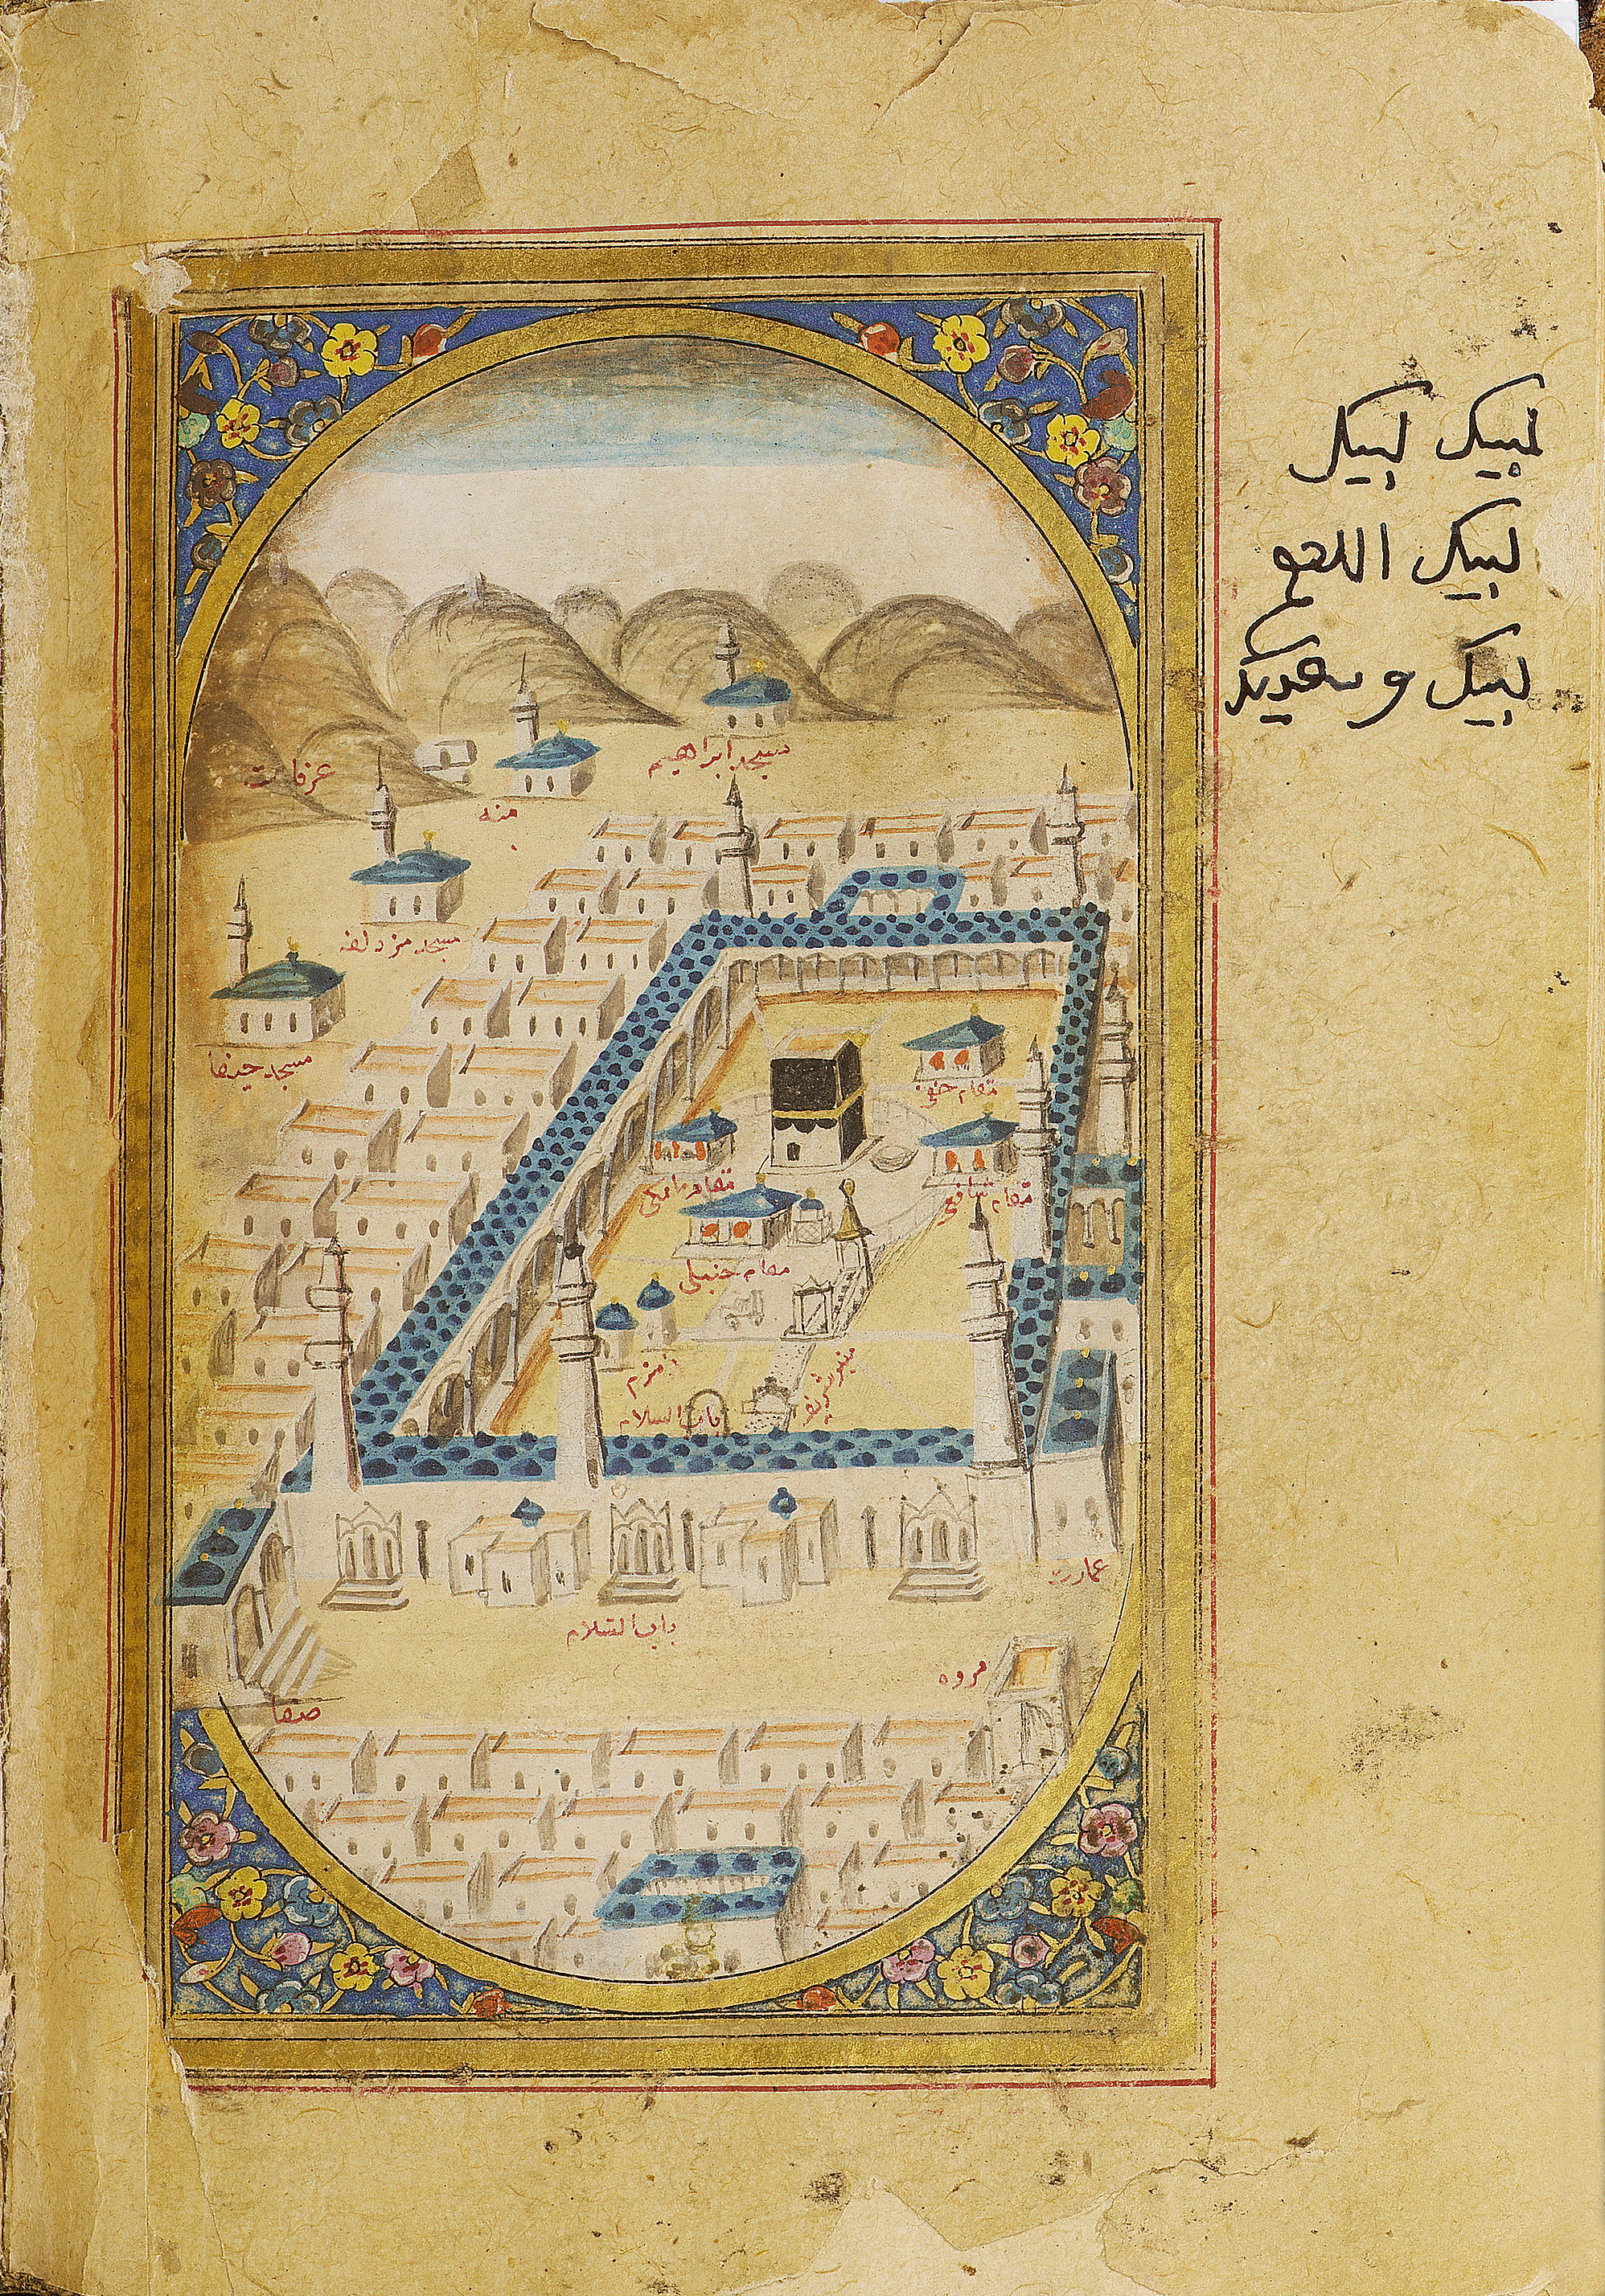 لبيك لبيك
لبيك اللهم
لبيك وسعديك
مسجد ابراهيم
عرفات
منه
مسجد مزدلفه
مسجد
مقام حنفى
مقام مالكى
مقام شافعى
مقام حنبلى
زمزم
منبر شريف
باب السلام
عمارت
باب السلام
مروه
صفا